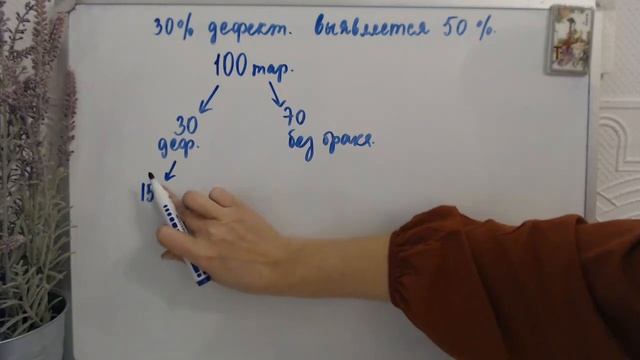 30% дефект. выявляется 50%.
100 тар.
30 70
деф. без брака.
15